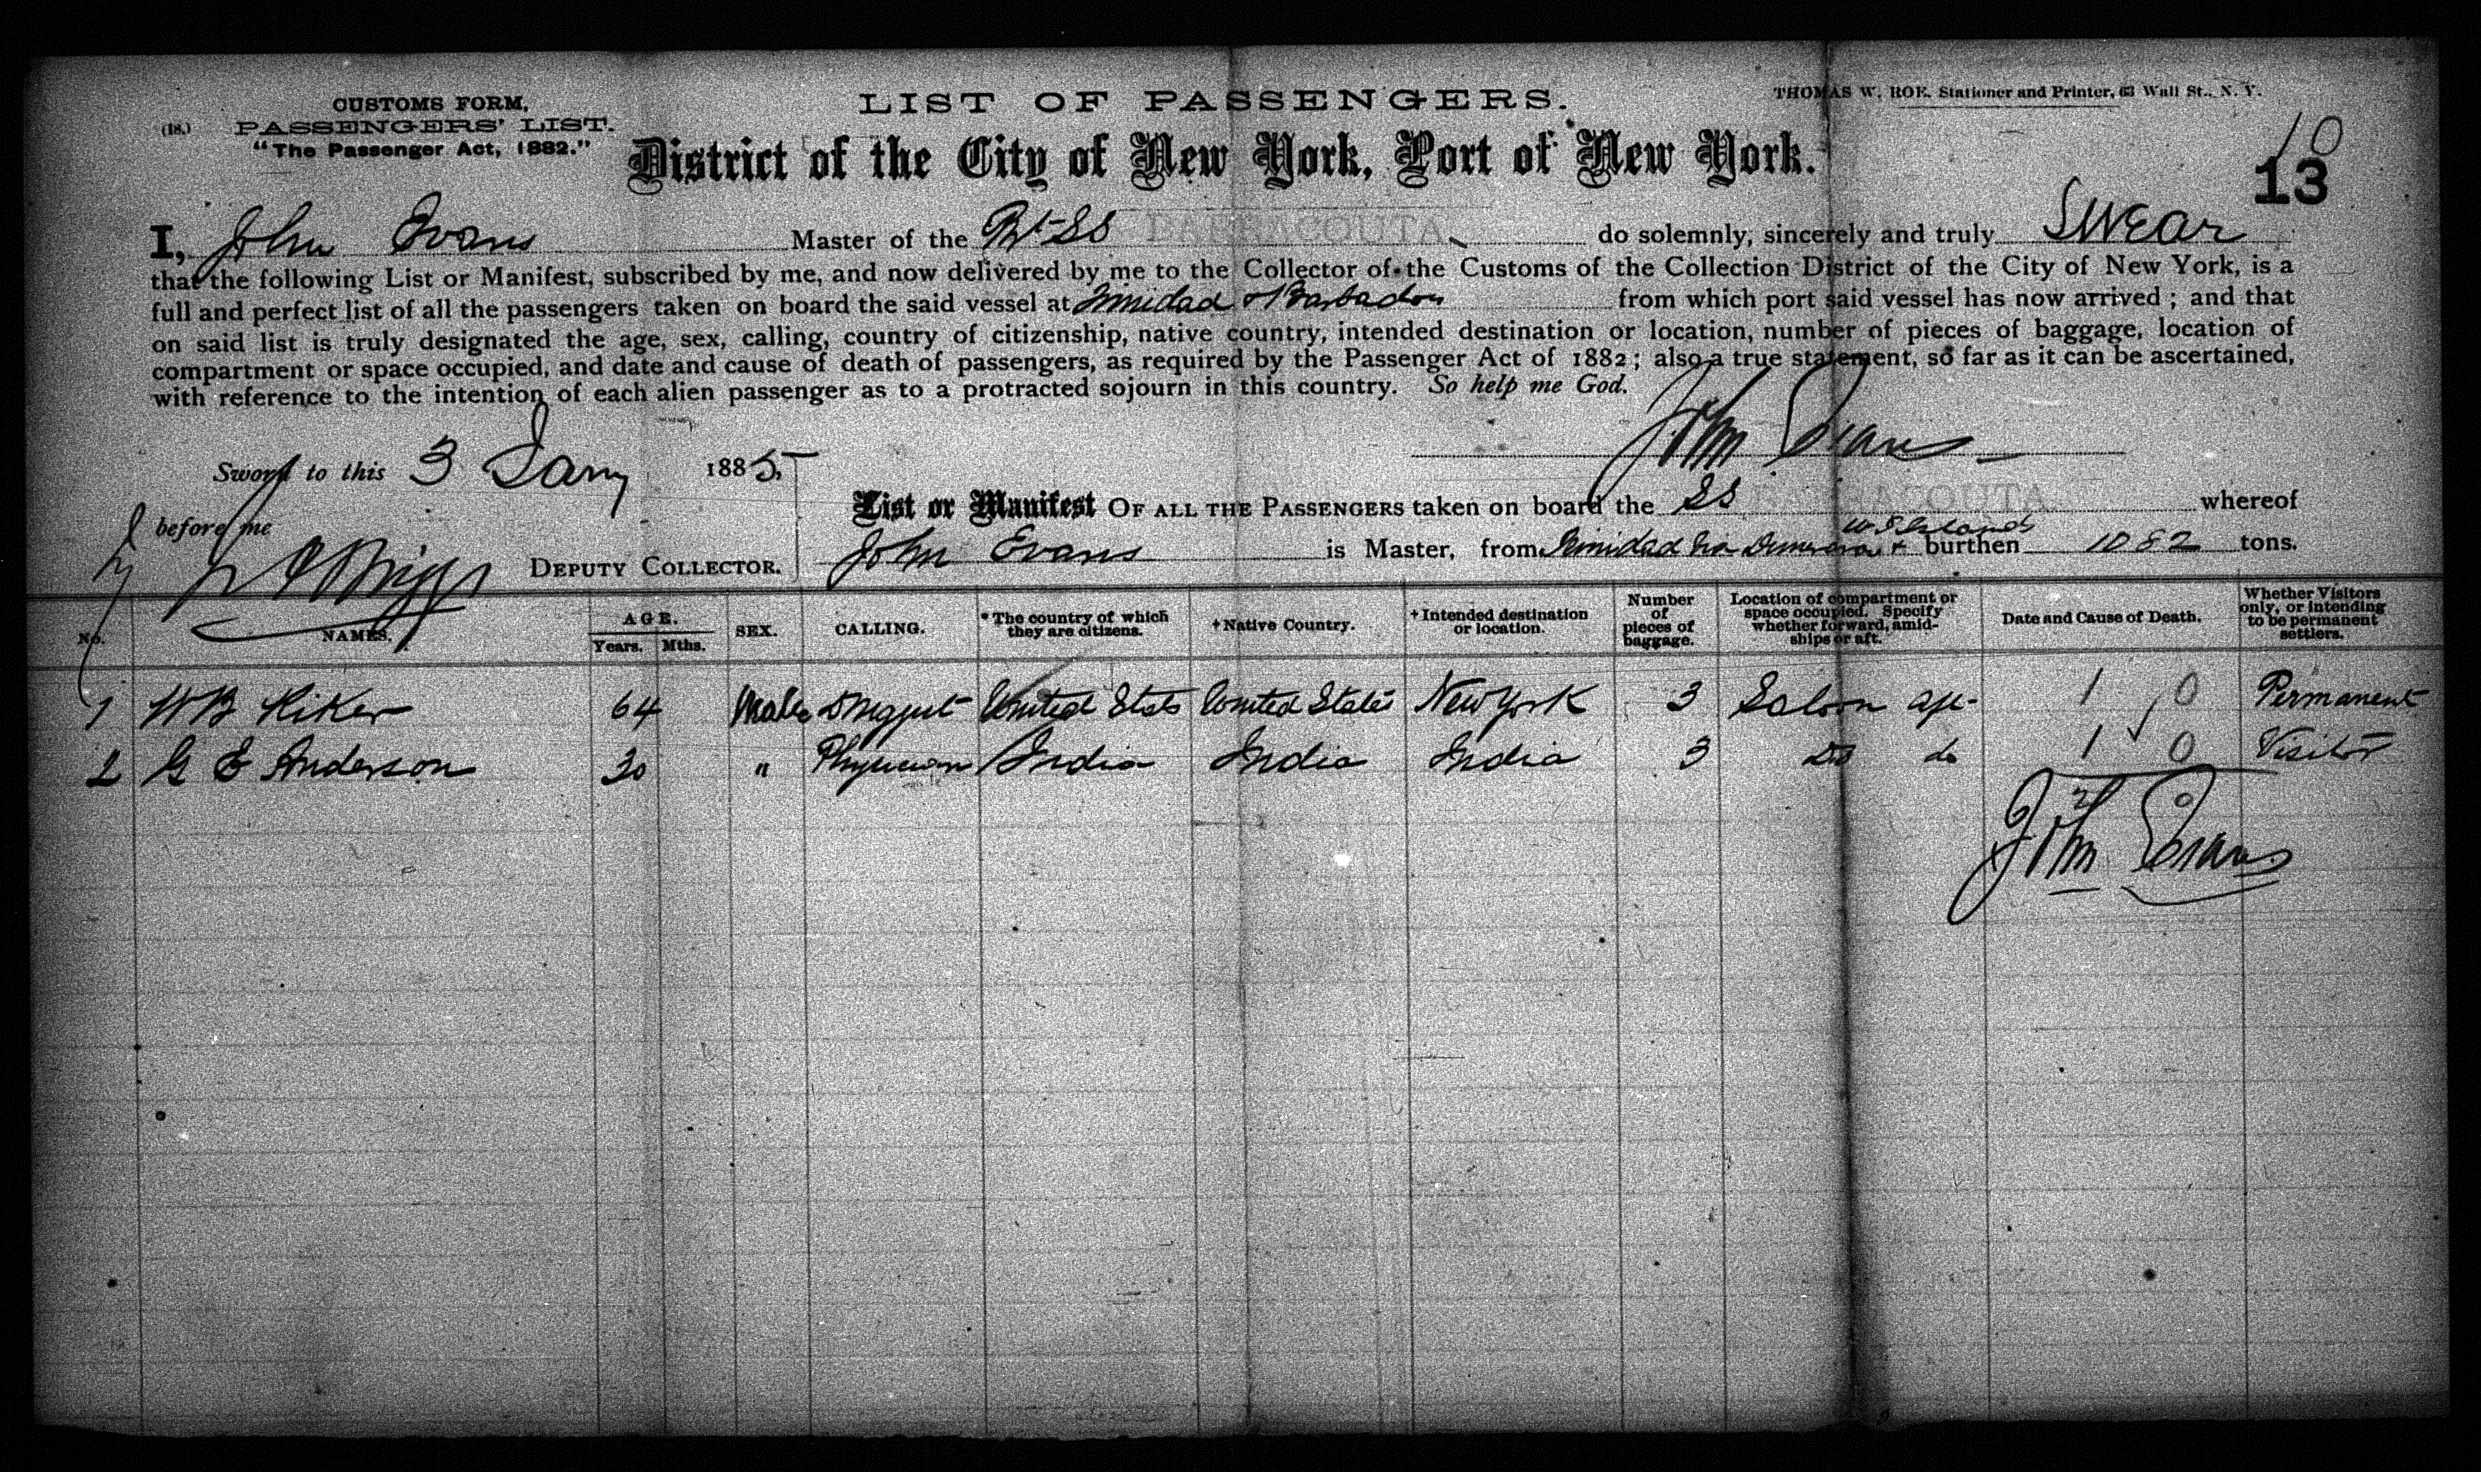 CUSTOMS FORM,
(18.) PASSENGERS' LIST.
"The Passenger Act, 1882."
LIST OF PASSENGERS.
THOMAS W. ROE. Stationer and Printer, 63 Wall St., N. Y.
District of the City of New York, Port of New York.
10
13
I, John Evans Master of the Bt SS do solemnly, sincerely and truly SWEAR
that the following List or Manifest, subscribed by me, and now delivered by me to the Collector of the Customs of the Collection District of the City of New York, is a
full and perfect list of all the passengers taken on board the said vessel at Trinidad & Barbados from which port said vessel has now arrived; and that
on said list is truly designated the age, sex, calling, country of citizenship, native country, intended destination or location, number of pieces of baggage, location of
compartment or space occupied, and date and cause of death of passengers, as required by the Passenger Act of 1882; also a true statement, so far as it can be ascertained,
with reference to the intention of each alien passenger as to a protracted sojourn in this country. So help me God.
John Evans
Sworn to this 3 Jany 1885,
before me
DEPUTY COLLECTOR.
List or Manifest OF ALL THE PASSENGERS taken on board the SS whereof
John Evans is Master, from Trinidad via Demerara & W I Islands burthen 1082 tons.
No. NAMES. AGE. Years. Mths. SEX. CALLING. *The country of which they are citizens. †Native Country. †Intended destination or location. Number of pieces of baggage. Location of compartment or space occupied. Specify whether forward, amidships or aft. Date and Cause of Death. Whether Visitors only, or intending to be permanent settlers.
1 W B Riker 64 Male Druggist United Stats United States New York 3 Saloon aft 1 0 Permanent
2 G E Anderson 30 " Physician India India India 3 Do do 1 0 Visitor
2 0
John Evans